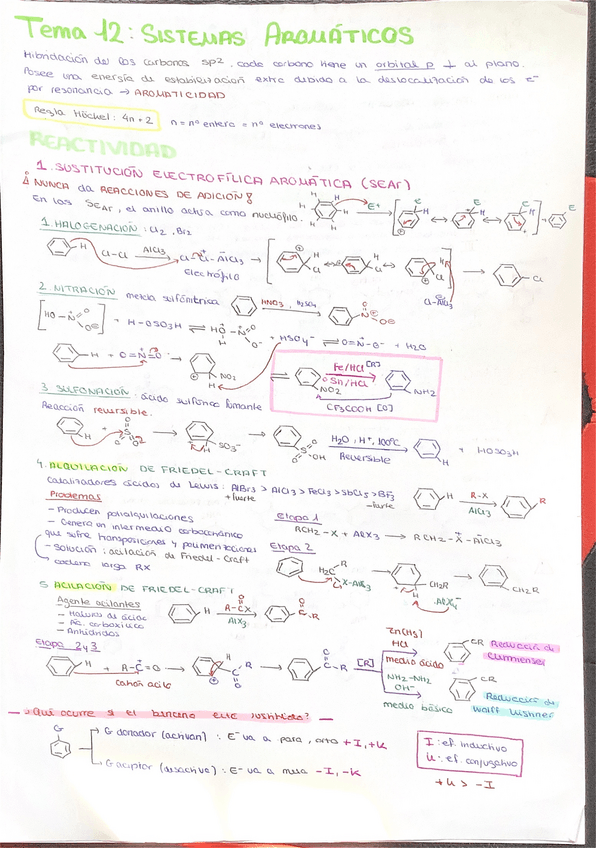 Tema 12: SISTEMAS AROMÁTICOS
Hibridación de los carbonos sp2, cada carbono tiene un orbital p ⊥ al plano.
Posee una energía de estabilización extra debido a la deslocalización de los e-
por resonancia → AROMATICIDAD
Regla Hückel: 4n+2
n = nº entero = nº electrones
REACTIVIDAD
1. SUSTITUCIÓN ELECTROFÍLICA AROMÁTICA (SEAr)
¡NUNCA da REACCIONES DE ADICIÓN!
En las SEAr, el anillo actúa como nucleófilo.
1. HALOGENACIÓN: Cl2, Br2
Cl-Cl AlCl3
Electrófilo
2. NITRACIÓN mezcla sulfonítrica
HNO3, H2SO4
+ H-OSO3H
+ HSO4- ⇌ O=N-O- + H2O
Fe/HCl [R]
Sn/HCl
NO2
NH2
CF3COOH [O]
3. SULFONACIÓN: ácido sulfúrico fumante
Reacción reversible.
SO3-
H2O, H+, 100ºC
Reversible
+ HOSO3H
4. ALQUILACIÓN DE FRIEDEL-CRAFT
Catalizadores ácidos de Lewis: AlBr3 > AlCl3 > FeCl3 > SbCl5 > BF3
+fuerte
-fuerte
R-X
AlCl3
Problemas
- Producen polialquilaciones
- Genera un intermedio carbocatiónico
que sufre transposiciones y polimerizaciones
- Solución: acilación de Friedel-Craft
cadena larga RX
Etapa 1
RCH2-X + AlX3 → RCH2-X-AlCl3
Etapa 2
H2C-R
X-AlX3
CH2R
AlX4-
CH2R
5. ACILACIÓN DE FRIEDEL-CRAFT
Agente acilantes
- Haluros de ácido
- Ác. carboxílico
- Anhídridos
R-C-X
AlX3
Etapa 2 y 3
+ R-C=O
Catión acilo
[R]
Zn(Hg)
HCl
medio ácido
CR Reducción de
Clemmensen
NH2-NH2
OH-
medio básico
CR Reducción de
Wolff Kishner
¿Qué ocurre si el benceno está sustituido?
G
G donador (activan): E- va a para, orto +I, +K
G aceptor (desactiva): E- va a meta -I, -K
I: ef. inductivo
K: ef. conjugativo
+K > -I